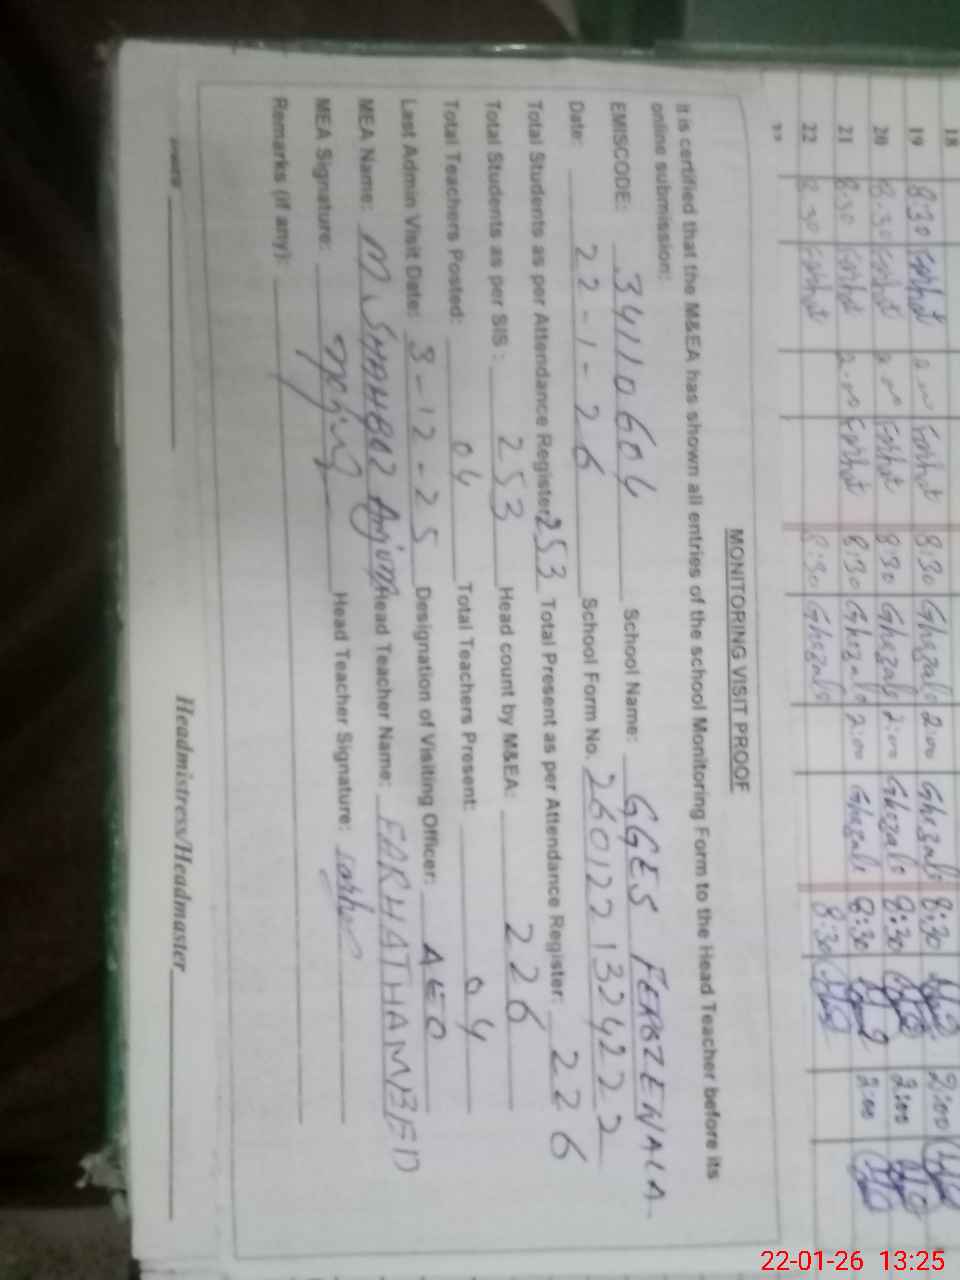 18
19 8:30 Farhat 2:00 Farhat 8:30 Ghazala 2:00 Ghazala 8:30 2:00
20 8:30 Farhat 2:00 Farhat 8:30 Ghazala 2:00 Ghazala 8:30 2:00
21 8:30 Farhat 2:00 Farhat 8:30 Ghazala 2:00 Ghazala 8:30 2:00
22 8:30 Farhat 8:30 Ghazala 8:30
MONITORING VISIT PROOF
It is certified that the M&EA has shown all entries of the school Monitoring Form to the Head Teacher before its
online submission:
EMISCODE: 34110604 School Name: GGES FEROZEWALA
Date: 22-1-26 School Form No. 260122132422
Total Students as per Attendance Register: 253 Total Present as per Attendance Register: 226
Total Students as per SIS: 253 Head count by M&EA: 226
Total Teachers Posted: 04 Total Teachers Present: 04
Last Admin Visit Date: 3-12-25 Designation of Visiting Officer: AEO
MEA Name: M. SHAHBAZ Anjum Head Teacher Name:
MEA Signature: Head Teacher Signature:
Remarks (if any):
Headmistress/Headmaster
22-01-26 13:25